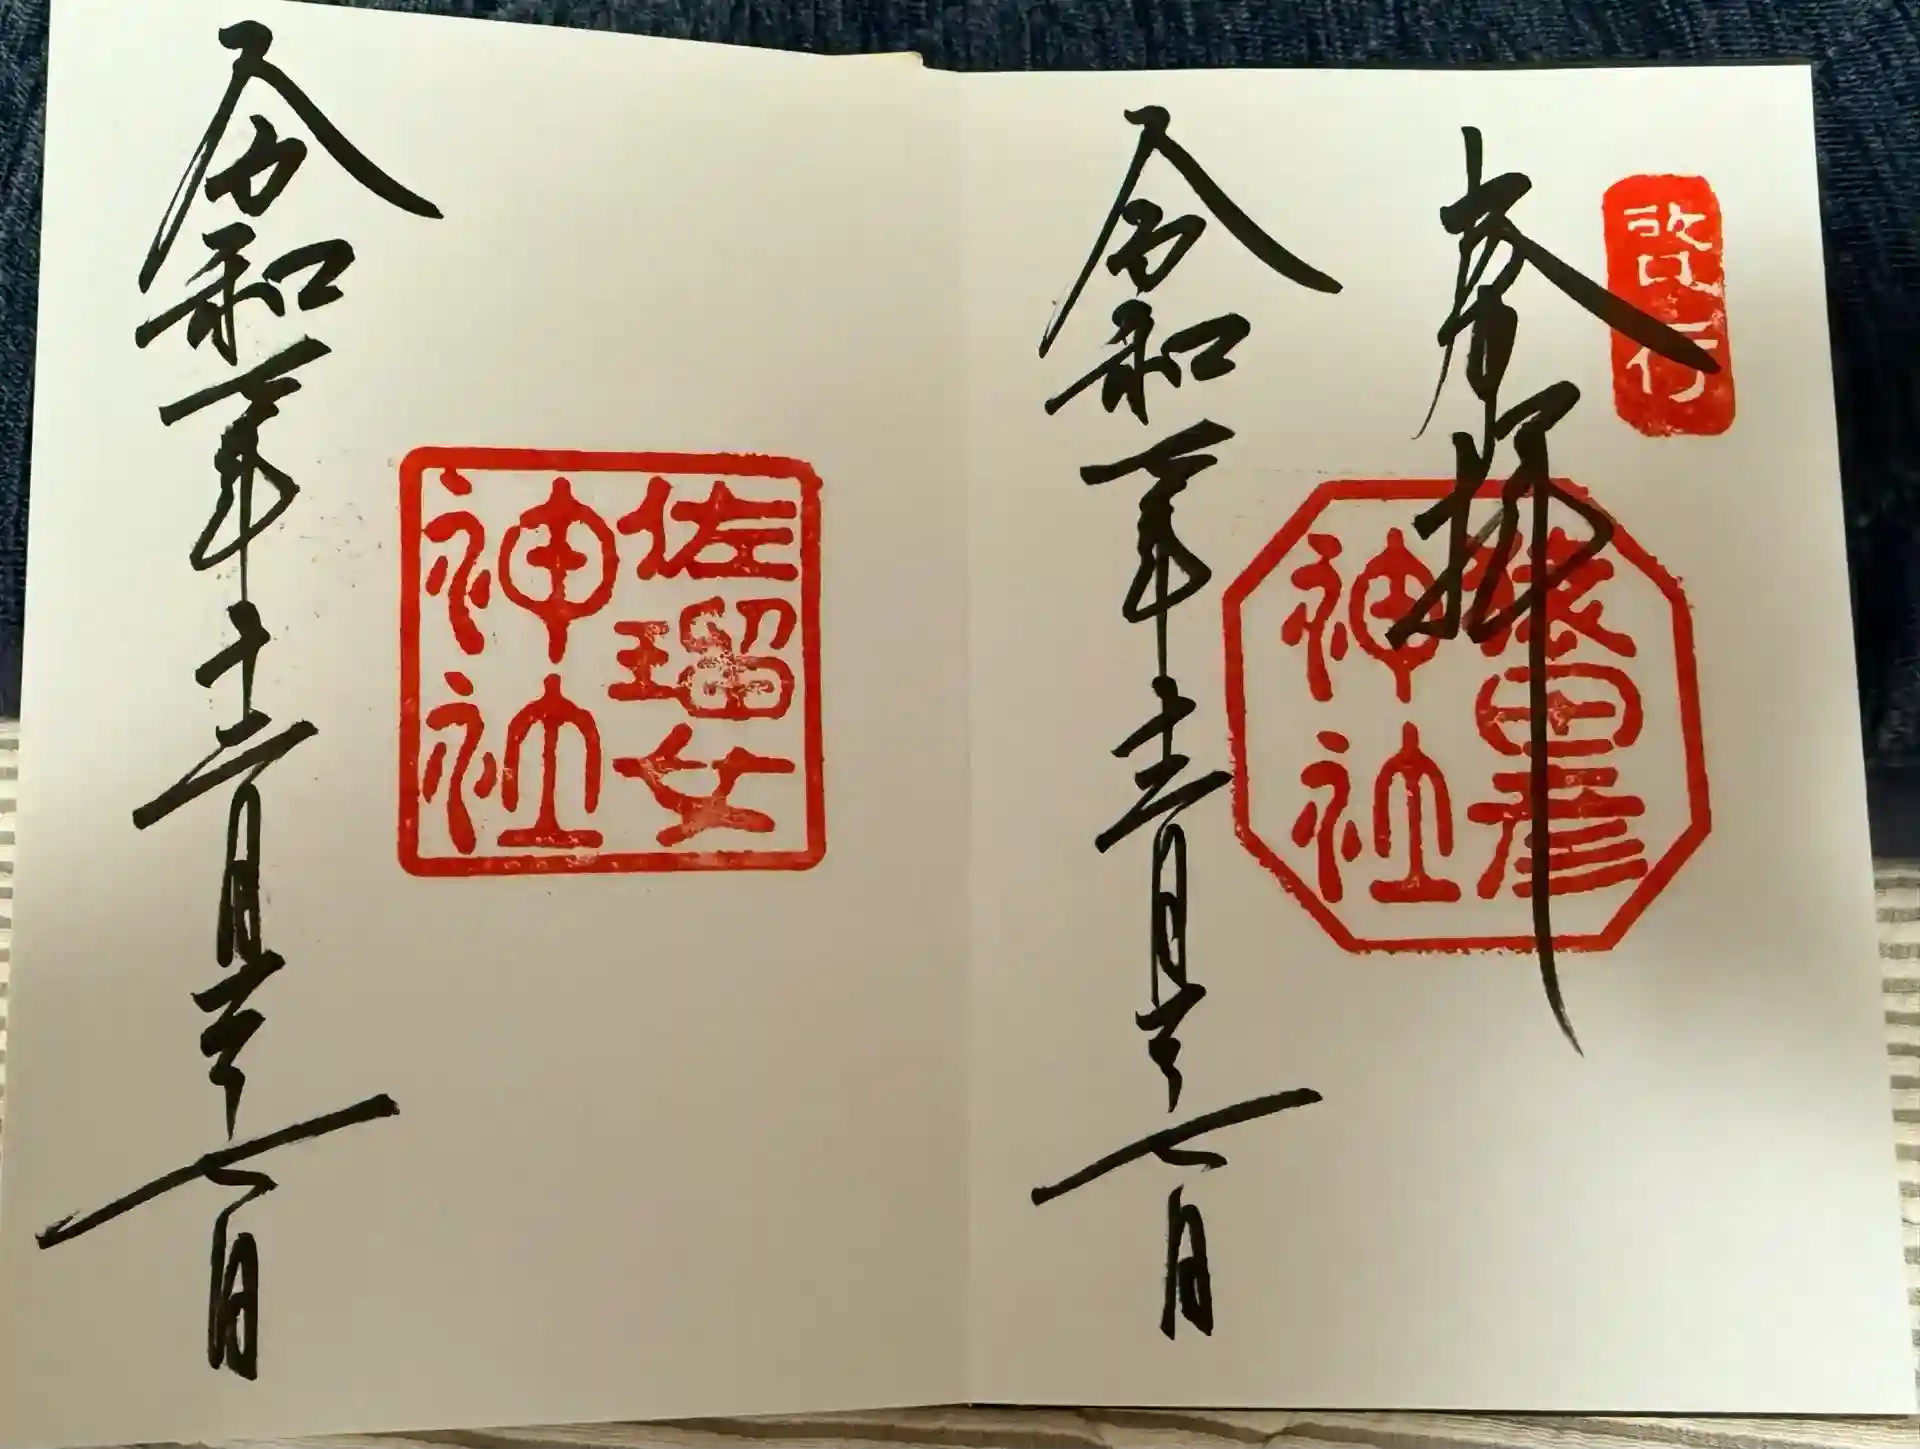 啓行
奉拝
猿田彦
神社
令和二年十二月二十七日
佐瑠女
神社
令和二年十二月二十七日